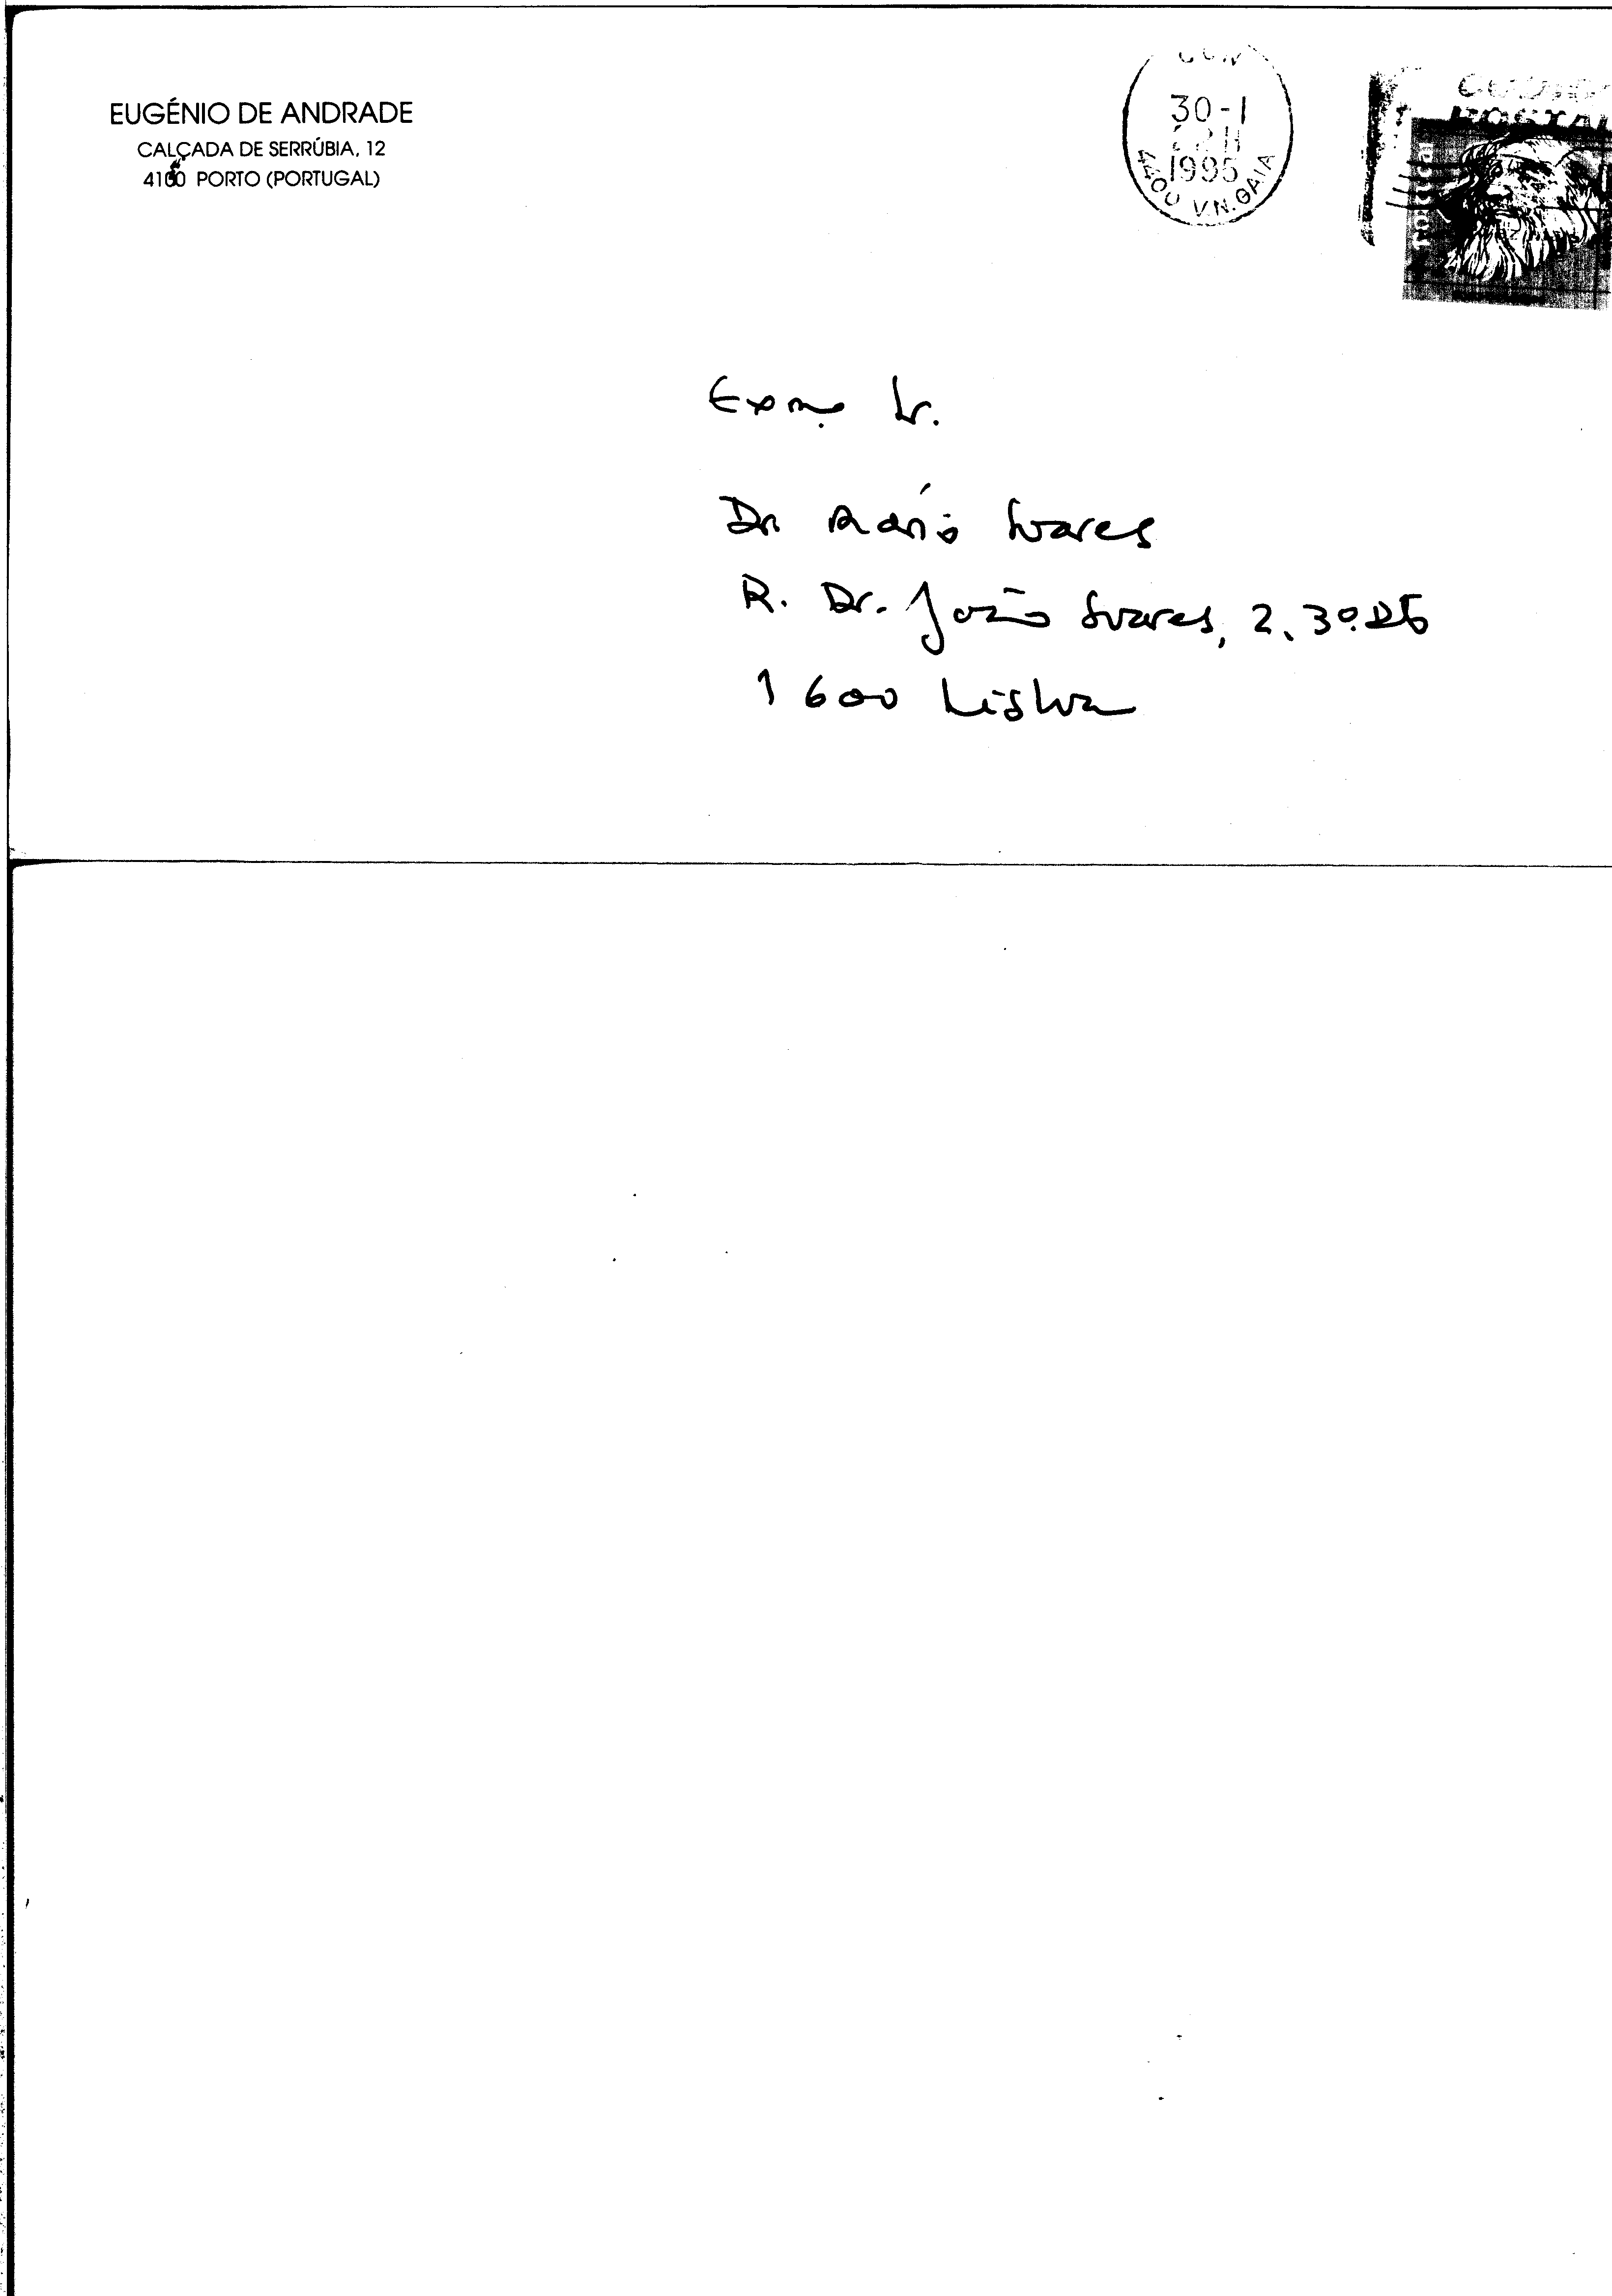 EUGÉNIO DE ANDRADE
CALÇADA DE SERRÚBIA, 12
4150 PORTO (PORTUGAL)
30-1
1995
4400 V.N.GAIA
CODIGO
POSTAL
Exmo. Sr.
Dr. Mário Soares
R. Dr. João Soares, 2, 3º. Dto
1600 Lisboa